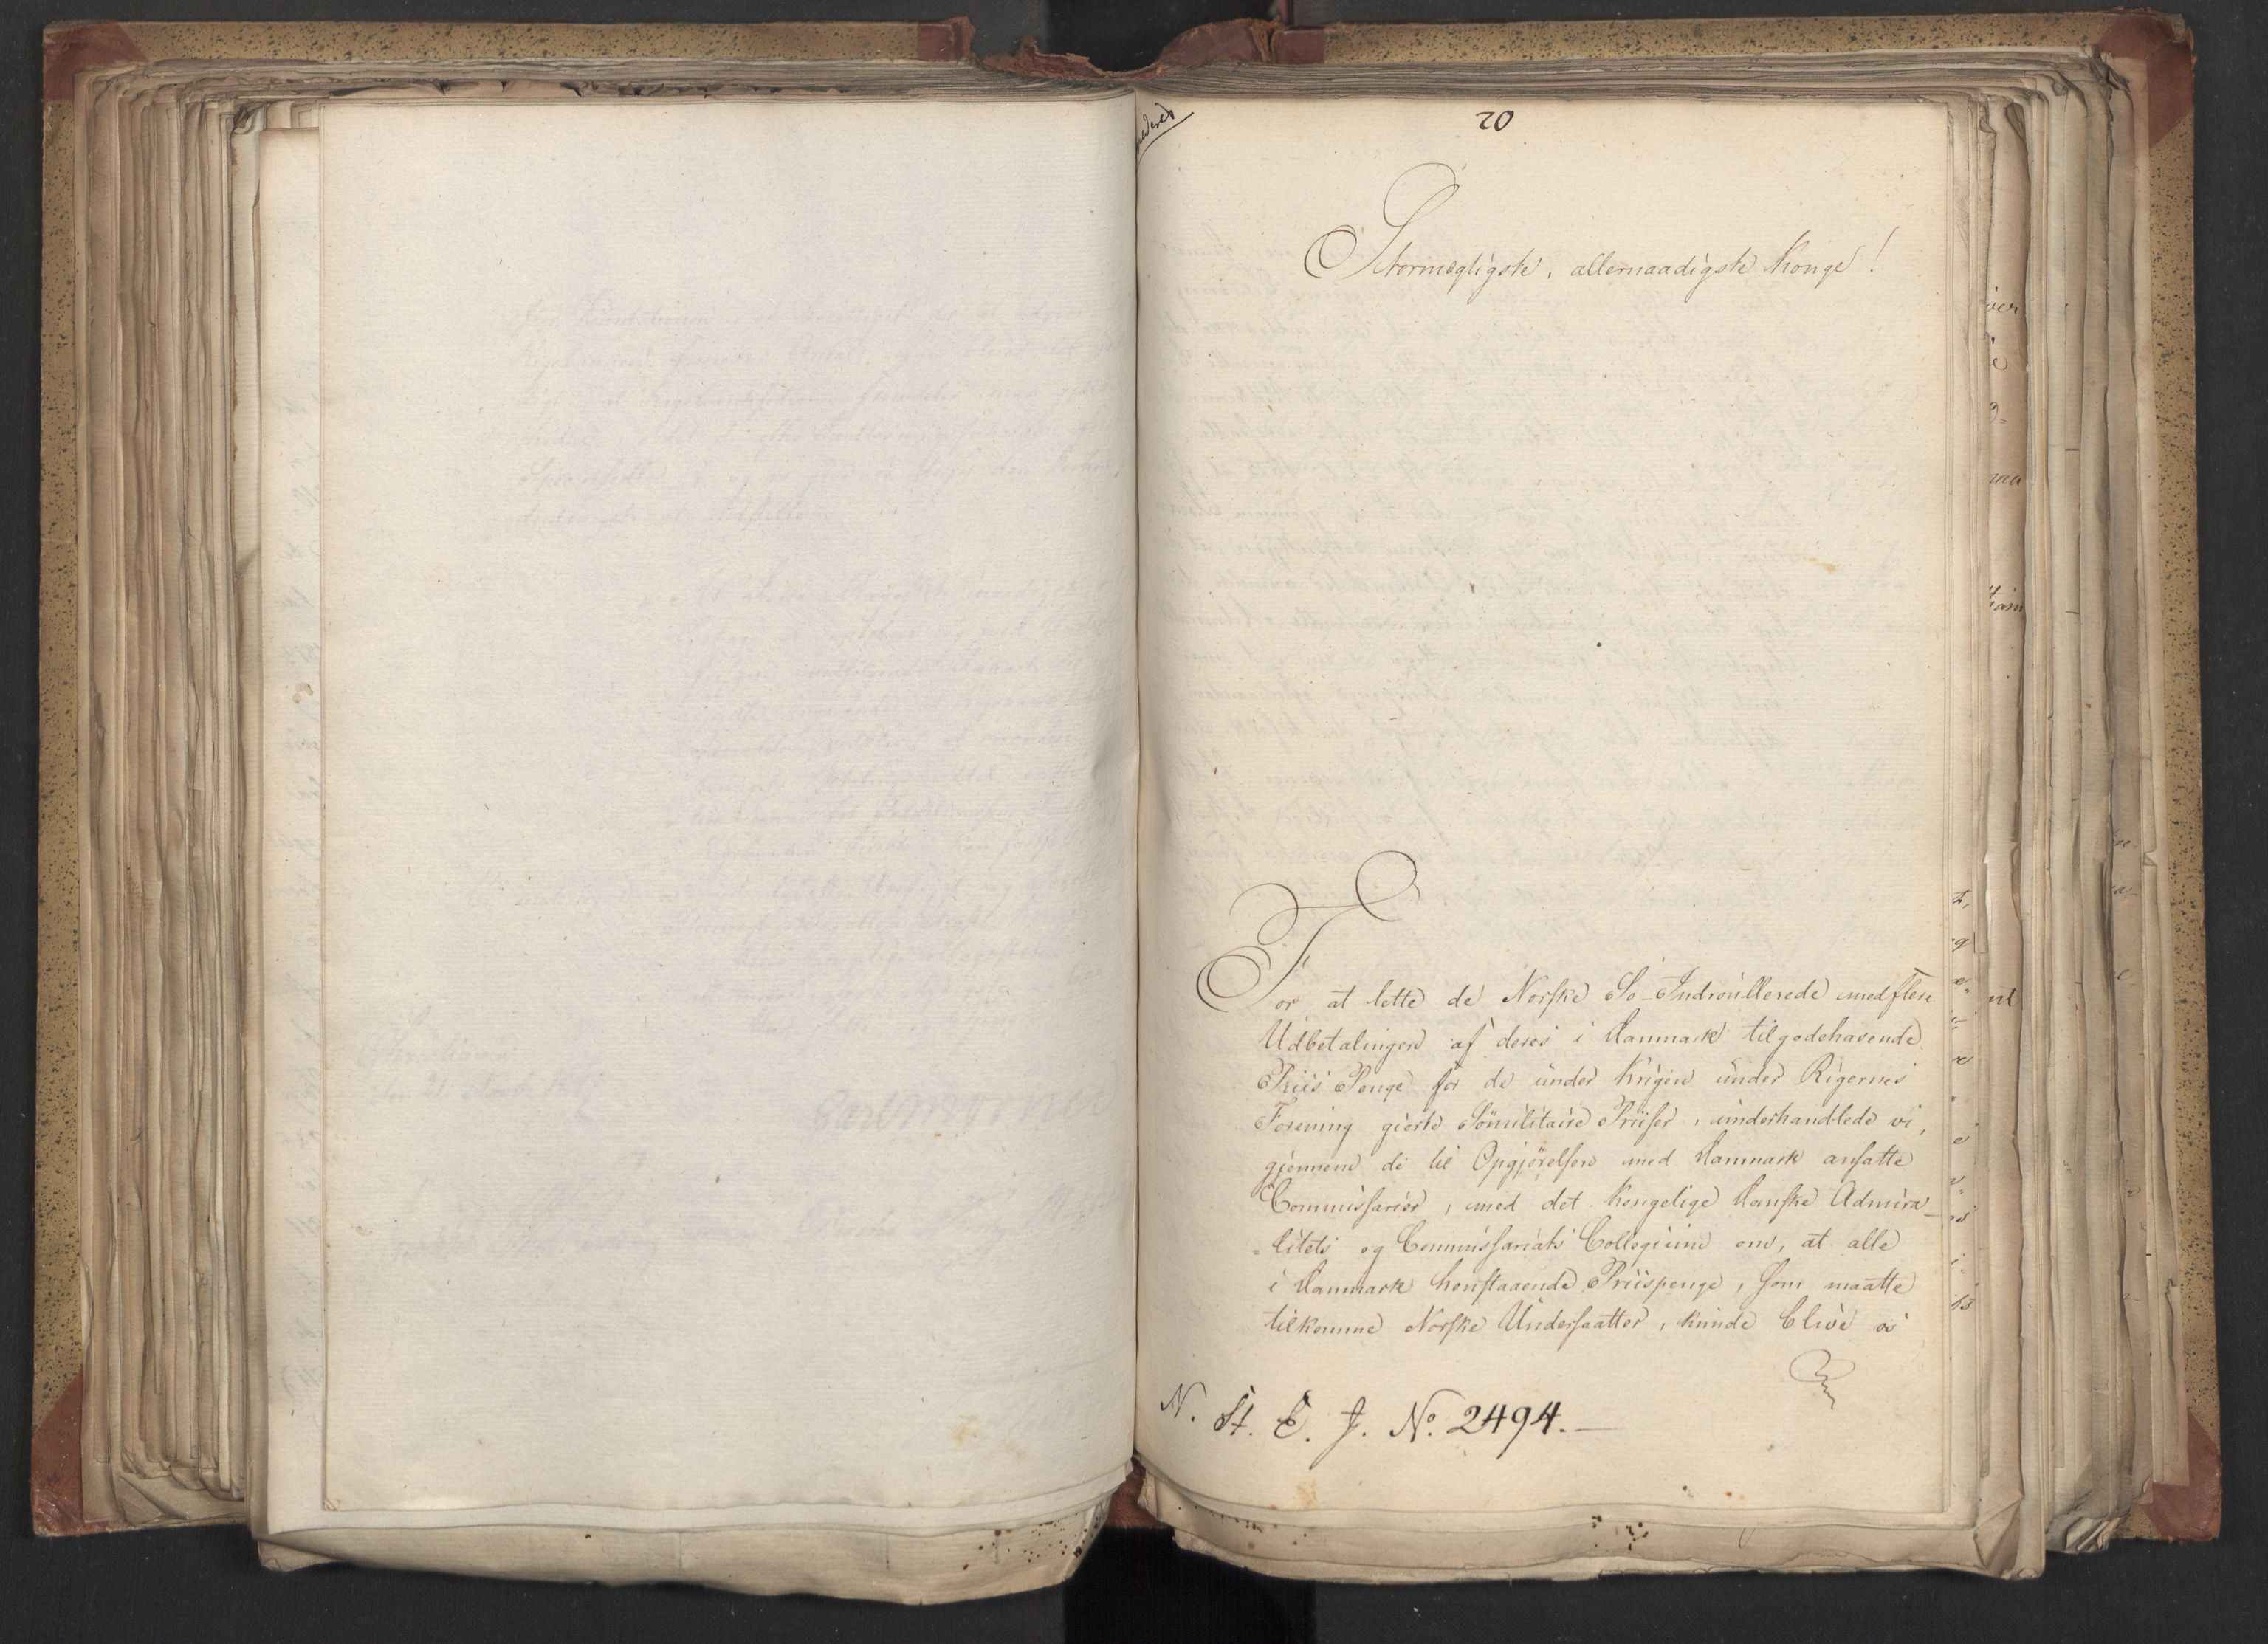 20
Stormægtigste, allernaadigste Konge!
For at lette de Norske Sö-Indroullerede med flere
Udbetalingen af deres i Danmark tilgodehavende
Priis Penge for de under Krigen under Rigernes
Forening giorte Sömilitaire Priiser, underhandlede vi,
gjennem de til Opgjörelsen med Danmark ansatte
Commissarier, med det Kongelige Danske Admira-
litets og Commissariats Collegium om, at alle
i Danmark henstaaende Priispenge, som maatte
tilkomme Norske Undersaatter, kunde blive os
N. St. E. J. No. 2494.-